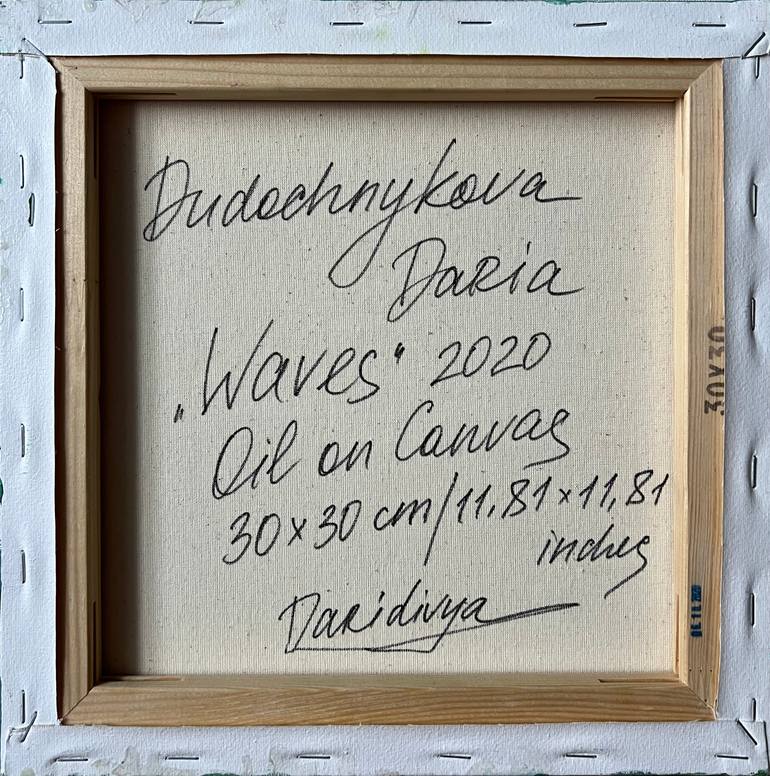 Dudochnykova
Daria
„Waves“ 2020
Oil on Canvas
30×30 cm/11,81×11,81
inches
Daridivya
30X30